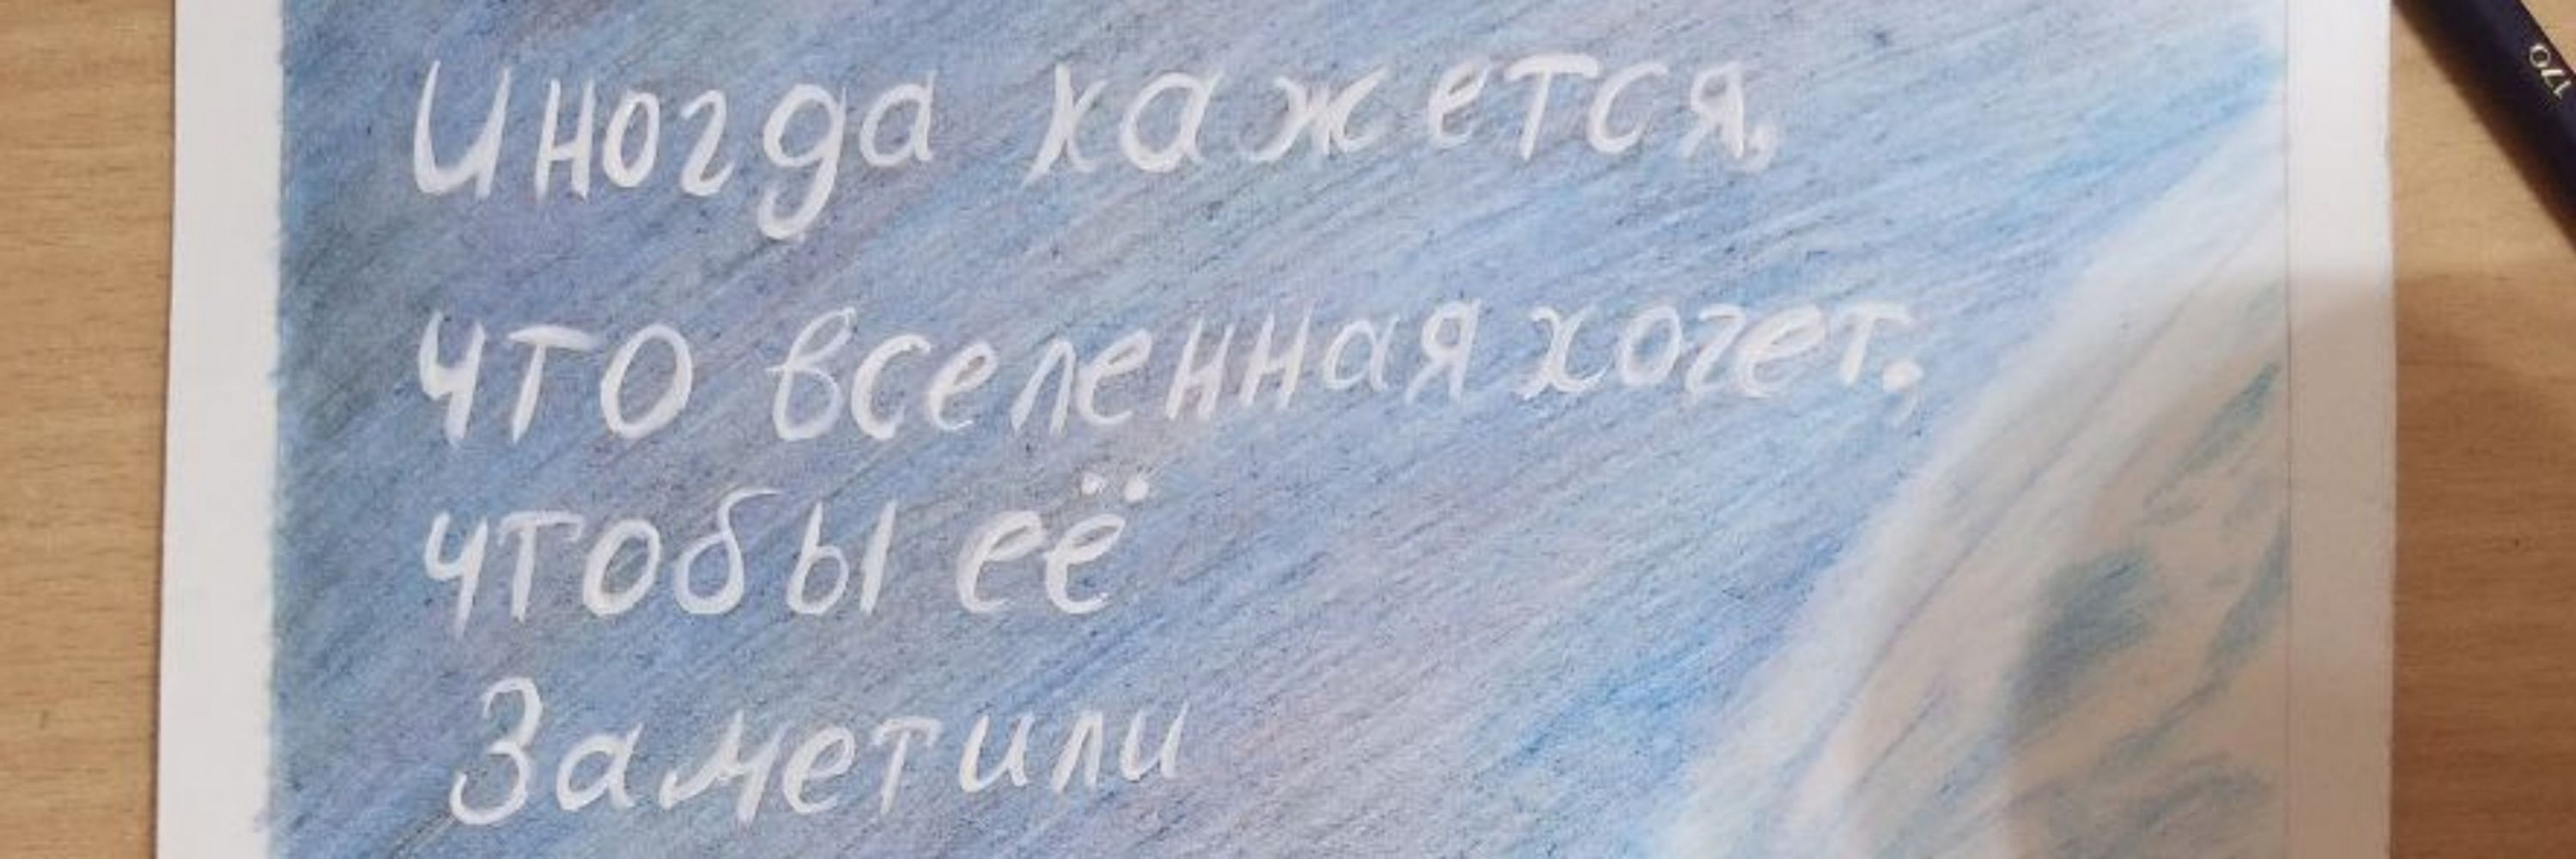 Иногда кажется,
что вселенная хочет,
чтобы её
Заметили
70